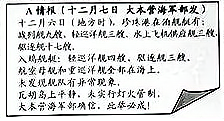 A情报(十二月七日 大本营海军部发)
十二月六日(地方时),珍珠港在泊舰艇有:
战列舰九艘,轻巡洋舰三艘,水上飞机供应舰三艘,
驱逐舰十七艘。
入坞舰艇:轻巡洋舰四艘,驱逐舰三艘。
航空母舰和重巡洋舰全部在海上。
未发现舰队有异常现象。
瓦胡岛上平静,未实行灯火管制。
大本营海军部确信,此举必成!